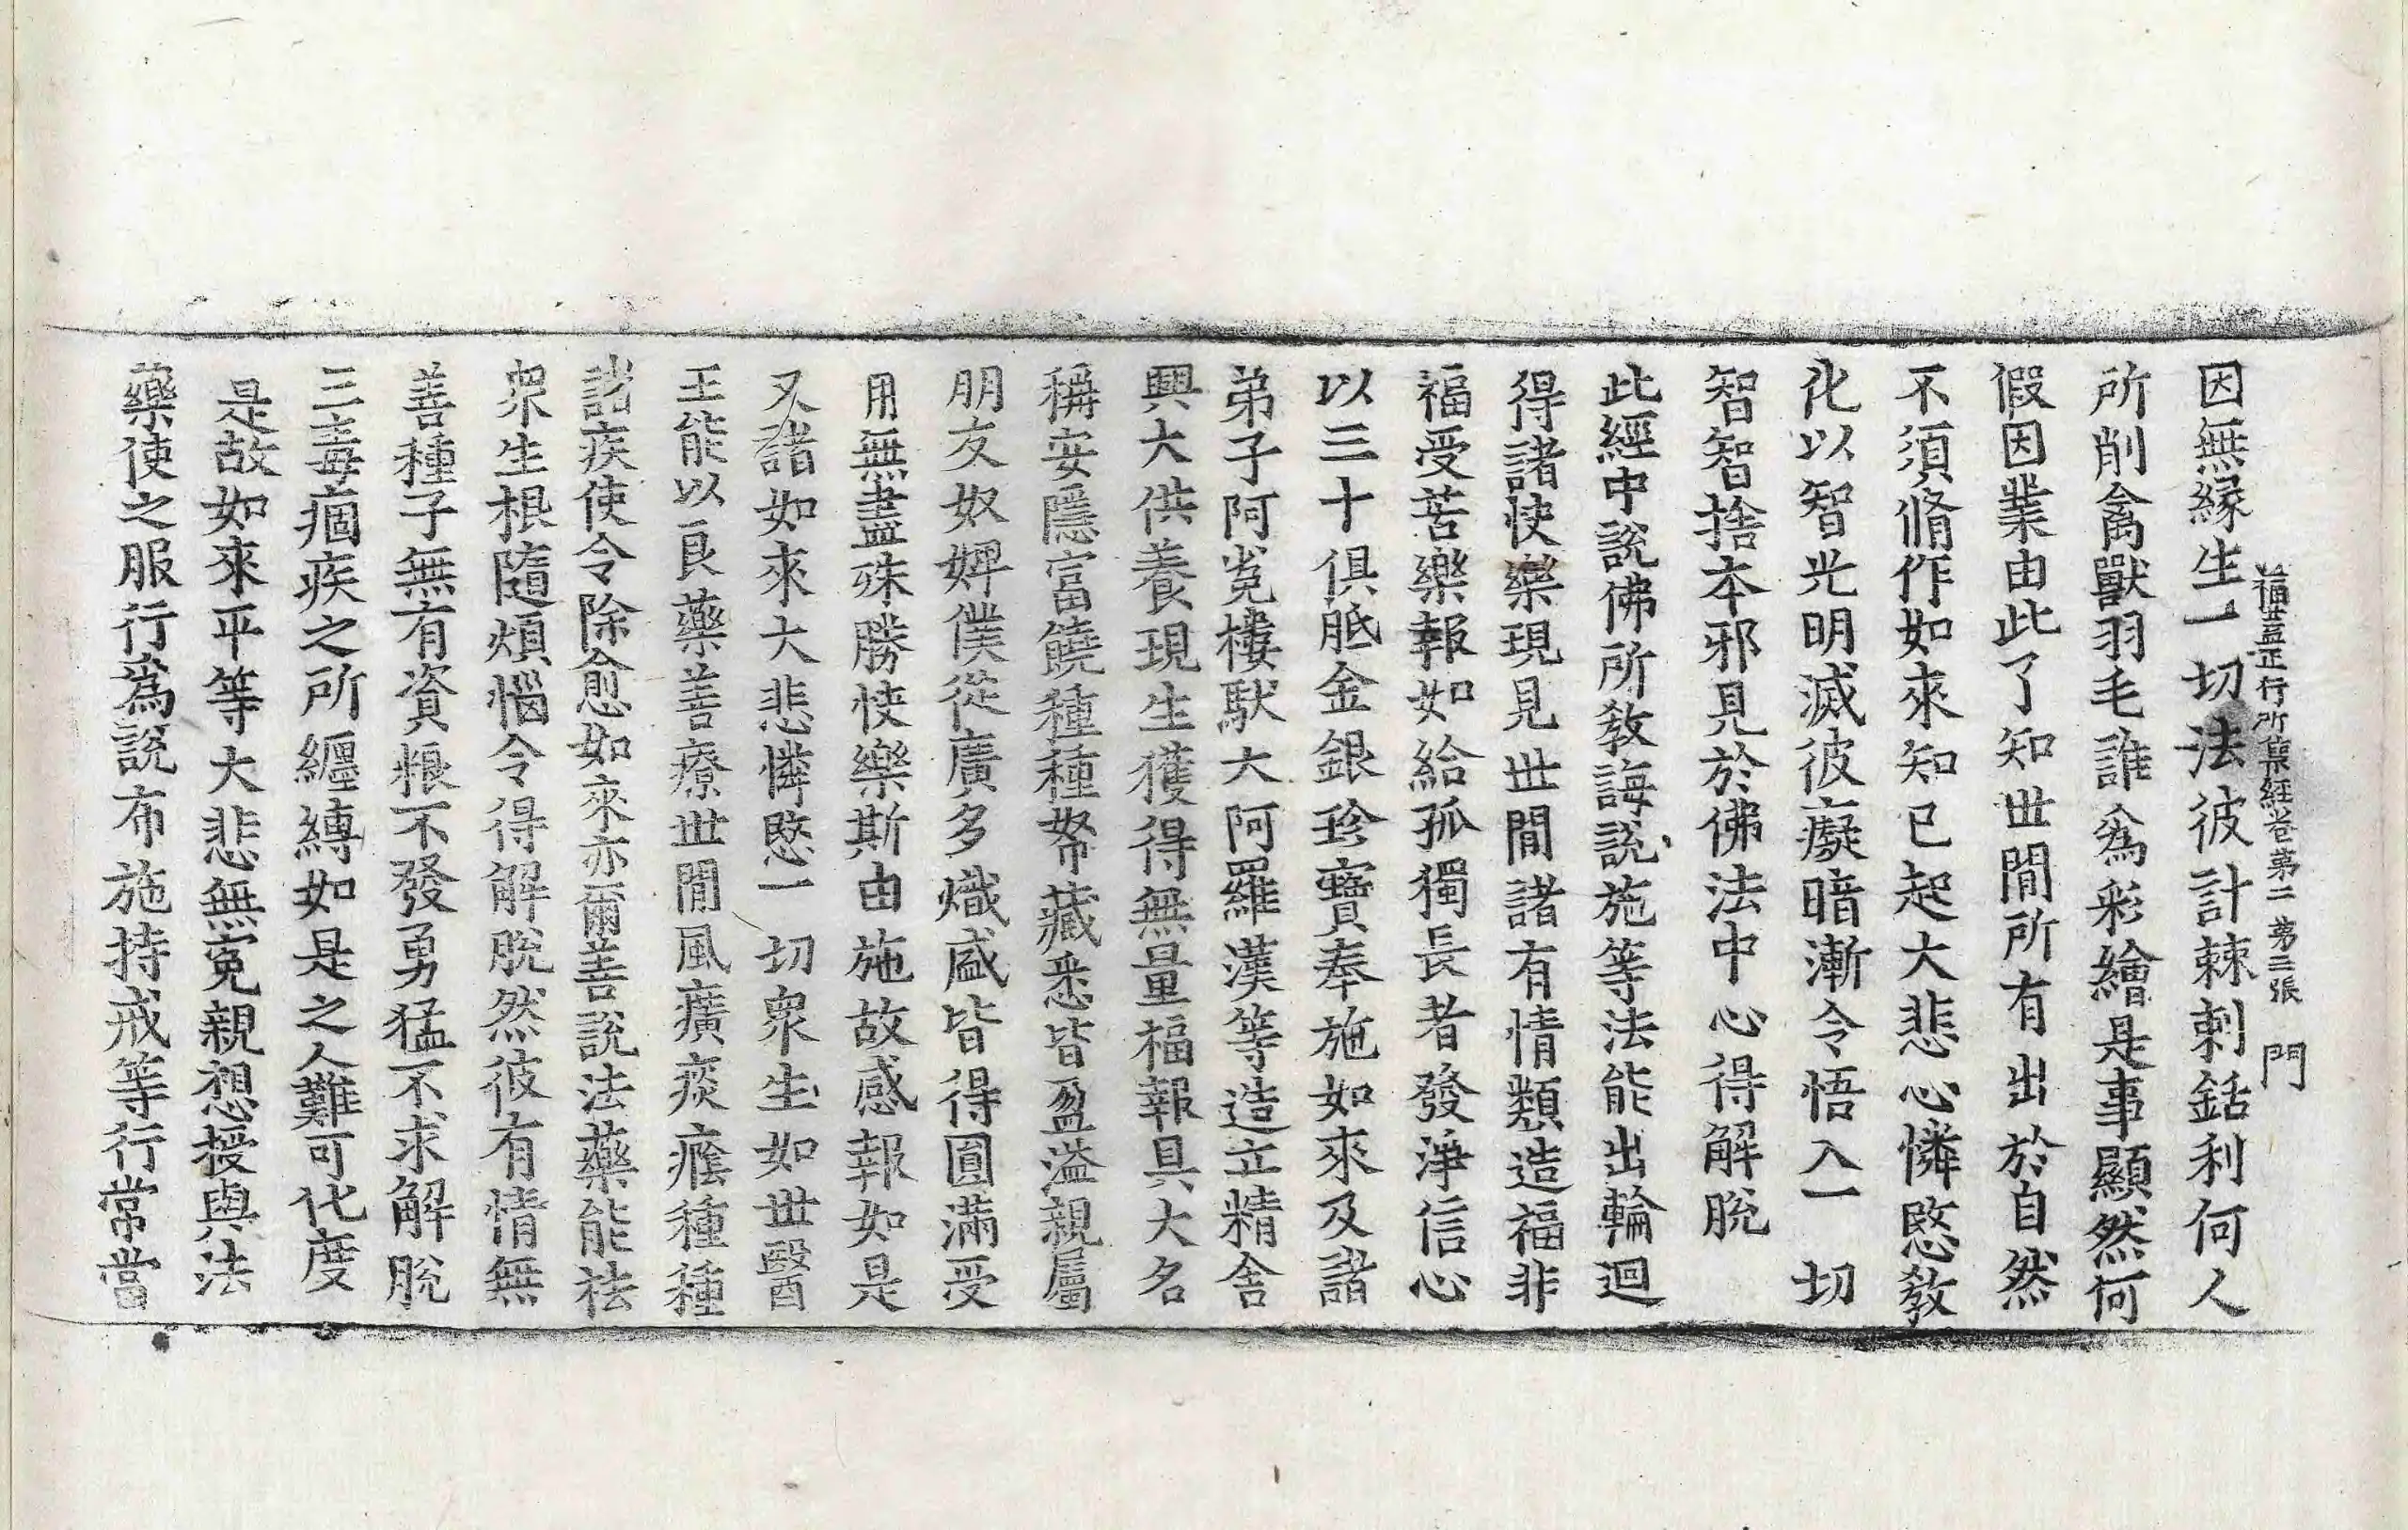 福蓋正行所集經卷第二 第二張 門
因無緣生一切法彼計棘刺銛利何人
所削禽獸羽毛誰為彩繪是事顯然何
假因業由此了知世間所有出於自然
不須脩作如來知已起大悲心憐愍敎
化以智光明滅彼癡暗漸令悟入一切
智智捨本邪見於佛法中心得解脫
此經中說佛所敎誨說施等法能出輪迴
得諸快樂現見世間諸有情類造福非
福受苦樂報如給孤獨長者發淨信心
以三十俱胝金銀珍寶奉施如來及諸
弟子阿㝹樓馱大阿羅漢等造立精舍
興大供養現生獲得無量福報具大名
稱安隱富饒種種帑藏悉皆盈溢親屬
朋友奴婢僕從廣多熾盛皆得圓滿受
用無盡殊勝快樂斯由施故感報如是
又諸如來大悲憐愍一切衆生如世醫
王能以良藥善療世間風癀痰癊種種
諸疾使令除愈如來亦爾善說法藥能祛
衆生根隨煩惱令得解脫然彼有情無
善種子無有資粮不發勇猛不求解脫
三毒痼疾之所纏縛如是之人難可化度
是故如來平等大悲無寃親想授與法
藥使之服行爲說布施持戒等行常當